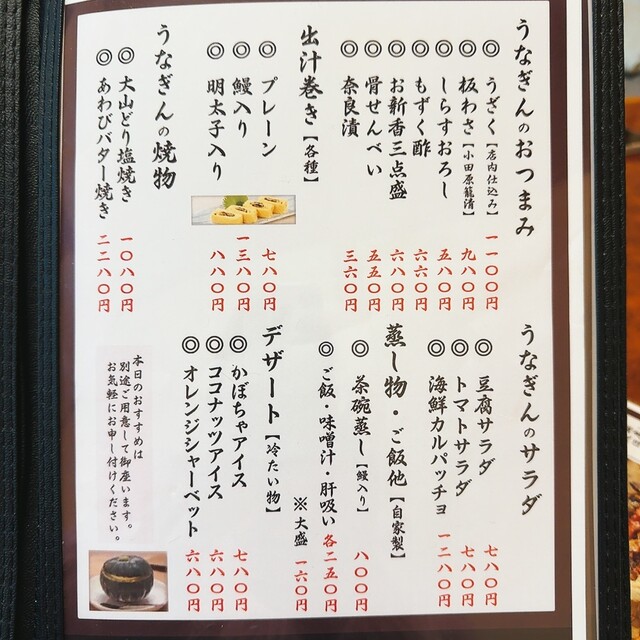 うなぎんのおつまみ
◎うざく【店内仕込み】 一一〇〇円
◎板わさ【小田原籠清】 九八〇円
◎しらすおろし 五八〇円
◎もずく酢 六六〇円
◎お新香三点盛 六八〇円
◎骨せんべい 五五〇円
◎奈良漬 三六〇円
出汁巻き【各種】
◎プレーン 七八〇円
◎鰻入り 一三八〇円
◎明太子入り 八八〇円
うなぎんの焼物
◎大山どり塩焼き 一〇八〇円
◎あわびバター焼き 二二八〇円
うなぎんのサラダ
◎豆腐サラダ 七八〇円
◎トマトサラダ 七八〇円
◎海鮮カルパッチョ 一二八〇円
蒸し物・ご飯他【自家製】
◎茶碗蒸し【鰻入り】 八〇〇円
◎ご飯・味噌汁・肝吸い 各二五〇円
※大盛 一六〇円
デザート【冷たい物】
◎かぼちゃアイス 七八〇円
◎ココナッツアイス 六八〇円
◎オレンジシャーベット 六八〇円
本日のおすすめは
別途ご用意して御座います。
お気軽にお申し付けください。